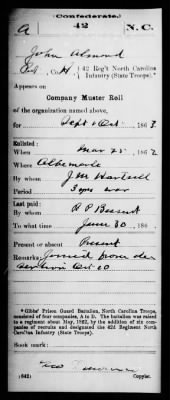 (Confederate.)
A 42 N.C.
John Almond
Pvt, Co. H, 42 Reg't North Carolina
Infantry (State Troops).*
Appears on
Company Muster Roll
of the organization named above,
for Sept & Oct, 1863.
Enlisted:
When Mar 25, 1862
Where Albemarle
By whom J.M. Hartsell
Period 3 yrs war
Last paid:
By whom
To what time June 30, 186
Present or absent Present
Remarks: Joined from de
sertion Oct 20
*Gibbs' Prison Guard Battalion, North Carolina Troops,
consisted of four companies, A to D. The battalion was raised
to a regiment about May, 1862, by the addition of six com-
panies of recruits and designated the 42d Regiment North
Carolina Infantry (State Troops).
Book mark:
(642) Copyist.